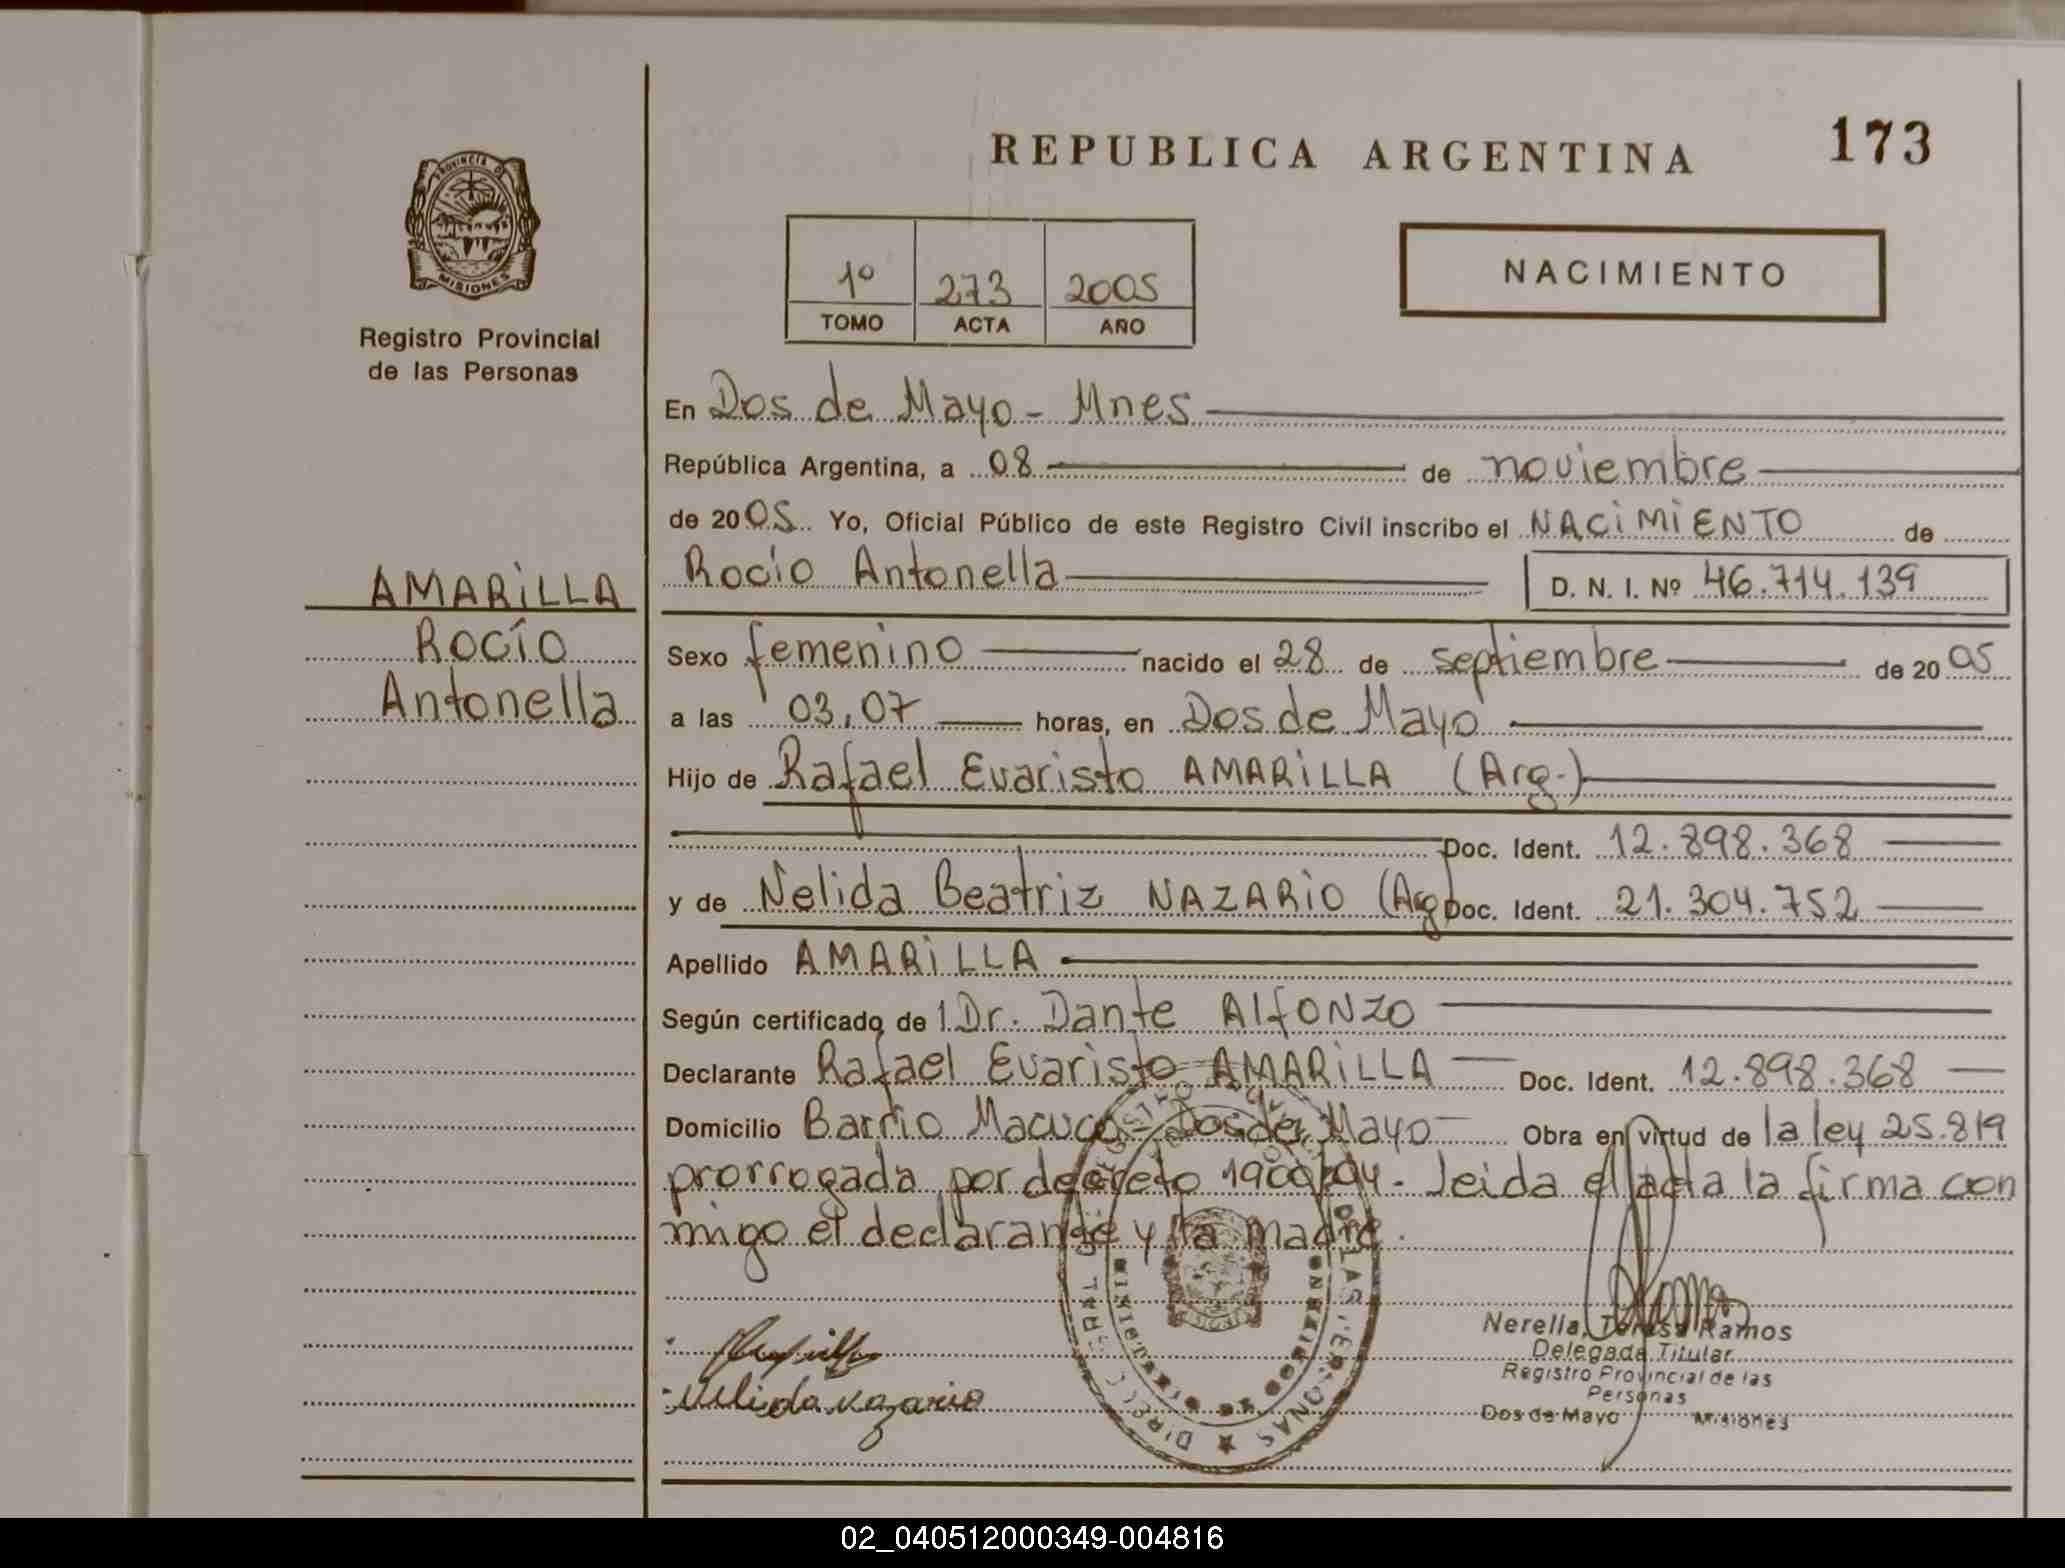 PROVINCIA DE
MISIONES
Registro Provincial
de las Personas
AMARiLLA
Rocío
Antonella
REPUBLICA ARGENTINA
173
1º 273 2005
TOMO ACTA AÑO
NACIMIENTO
En Dos de Mayo - Mnes
República Argentina, a 08 de noviembre
de 2005 Yo, Oficial Público de este Registro Civil inscribo el NACiMiENTO de
Rocío Antonella D. N. I. Nº 46.714.139
Sexo femenino nacido el 28 de septiembre de 2005
a las 03,07 horas, en Dos de Mayo
Hijo de Rafael Evaristo AMARiLLA (Arg.)
Doc. Ident. 12.898.368
y de Nelida Beatriz NAZARiO (Ag) Doc. Ident. 21.304.752
Apellido AMARiLLA
Según certificado de 1 Dr. Dante AlfONZO
Declarante Rafael Evaristo AMARiLLA Doc. Ident. 12.898.368
Domicilio Barrio Macuco - Dos de Mayo Obra en virtud de la ley 25.819
prorrogada por decreto 1900/04. leida el acta la firma con
migo el declarante y la madre.
Nelida nazario
Nerella, Teresa Ramos
Delegada Titular
Registro Provincial de las
Personas
Dos de Mayo Misiones
02_040512000349-004816